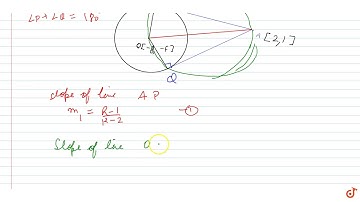 ∠P + ∠Q = 180°
O[-g, -f]
A [2,1]
Q
slope of line AP
m₁ = k-1 / h-2 — ①
Slope of line O